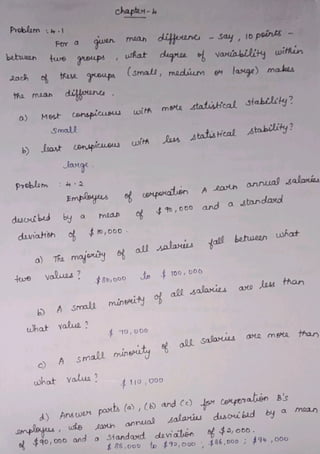 chapter-4
Problem : 4.1
For a given mean difference - say, 10 points -
between two groups, what degree of variability within
each of these groups (small, medium or large) makes
the mean difference.
a) Most conspicuous with more statistical stability?
Small
b) least conspicuous with less statistical stability?
Large.
Problem : 4.2
Employees of corporation A earn annual salaries
described by a mean of $ 90,000 and a standard
deviation of $ 10,000.
a) The majority of all salaries fall between what
two values? $ 80,000 to $ 100,000
b) A small minority of all salaries are less than
what value ?
$ 70,000
c) A small minority of all salaries are more than
what value ?
$ 110,000
d) Answer parts (a), (b) and (c) for corporation B's
employees, who earn annual salaries described by a mean
of $90,000 and a standard deviation of $2,000.
$ 88,000 to $ 92,000 ; $ 86,000 ; $ 94,000